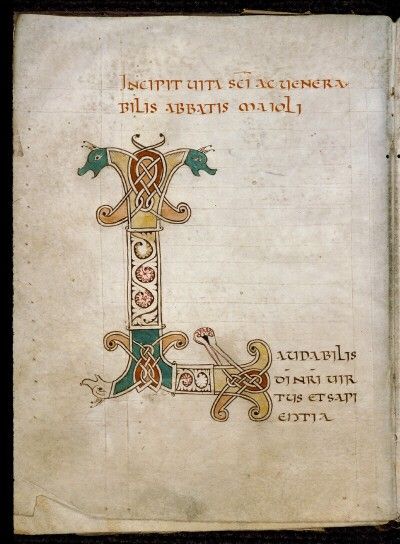 INCIPIT UITA SCI AC UENERA-
BILIS ABBATIS MAIOLI
LAUDABILIS
DNI NRI UIR
TUS ET SAPI
ENTIA